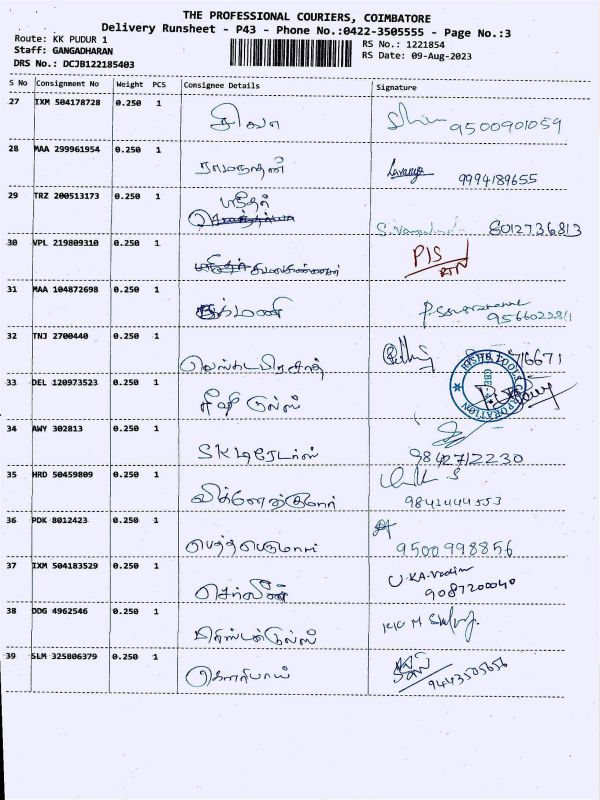 THE PROFESSIONAL COURIERS, COIMBATORE
Delivery Runsheet - P43 - Phone No.:0422-3505555 - Page No.:3
Route: KK PUDUR 1
RS No.: 1221854
Staff: GANGADHARAN
RS Date: 09-Aug-2023
DRS No.: DCJB122185403
S No Consignment No Weight PCS Consignee Details Signature
27 IXM 504178728 0.250 1 சிவா 9500901059
28 MAA 299961954 0.250 1 ராமநாதன் Lavanya 9994189655
29 TRZ 200513173 0.250 1 ஸ்ரீதர் 8012736813
30 VPL 219809310 0.250 1 PIS
31 MAA 104872698 0.250 1
32 TNJ 2700440 0.250 1 வெங்கடபிரசாத் 716671
33 DEL 120973523 0.250 1 ரிஷி டூல்ஸ் RISHI TOOLS CORPORATION
34 AWY 302813 0.250 1 SK டிரேடர்ஸ் 9842712230
35 HRD 50459809 0.250 1 விக்னேஷ்குமார்
36 PDK 8012423 0.250 1 பெத்தபெருமாள் 9500998856
37 IXM 504183529 0.250 1 செர்லின் 9087200040
38 DDG 4962546 0.250 1 KKM
39 SLM 325806379 0.250 1 கௌரிபாய் 9443505656